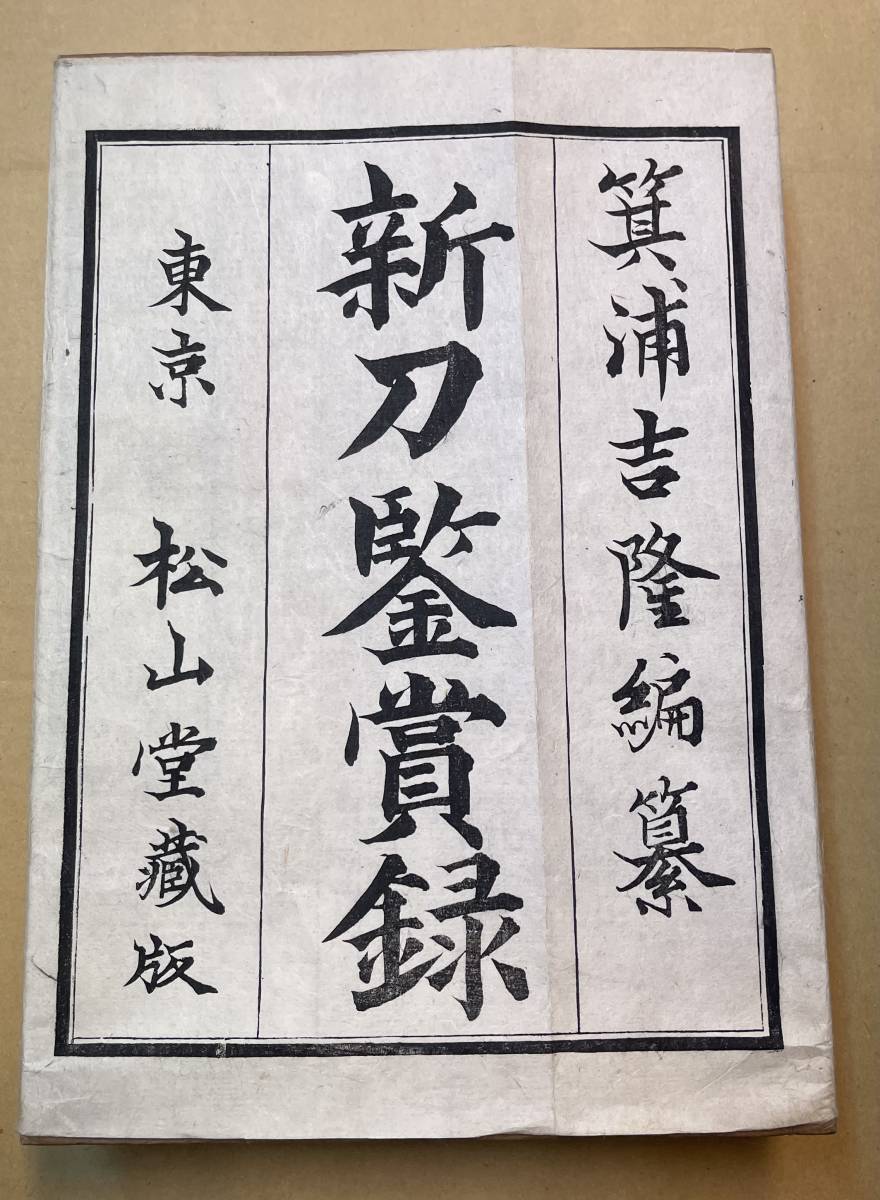 箕浦吉隆編纂
新刀鑒賞録
東京 松山堂藏版